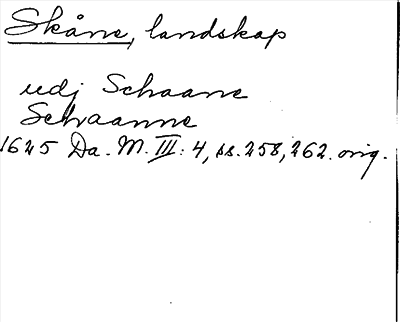 Skåne, landskap
udj Schaane
Schaanne
1625 Da. M. III: 4, ss. 258, 262. orig.